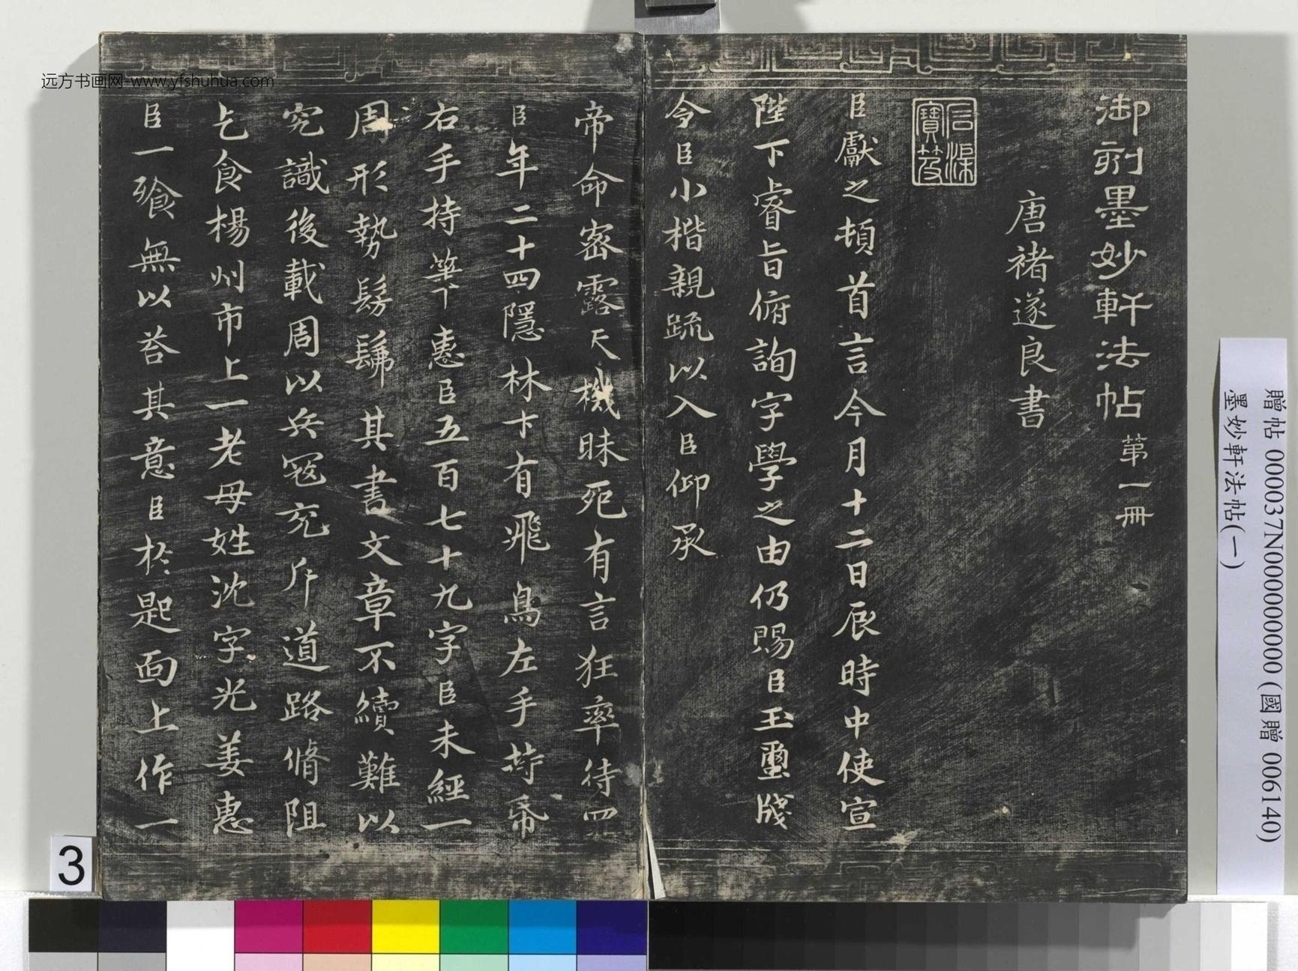 御刻墨妙軒法帖 第一冊
唐褚遂良書
臣獻之頓首言今月十二日辰時中使宣
陛下睿旨俯詢字學之由仍賜臣玉璽牋
令臣小楷親疏以入臣仰承
帝命密露天機昧死有言狂率待罪
臣年二十四隱林下有飛鳥左手持帋
右手持筆惠臣五百七十九字臣未經一
周形勢髣髴其書文章不續難以
究識後載周以兵寇充斥道路脩阻
乞食楊州市上一老母姓沈字光姜惠
臣一飱無以答其意臣於匙面上作一
贈帖 000037N000000000 (國贈 006140)
墨妙軒法帖(一)
3
远方书画网-www.yfshuhua.com